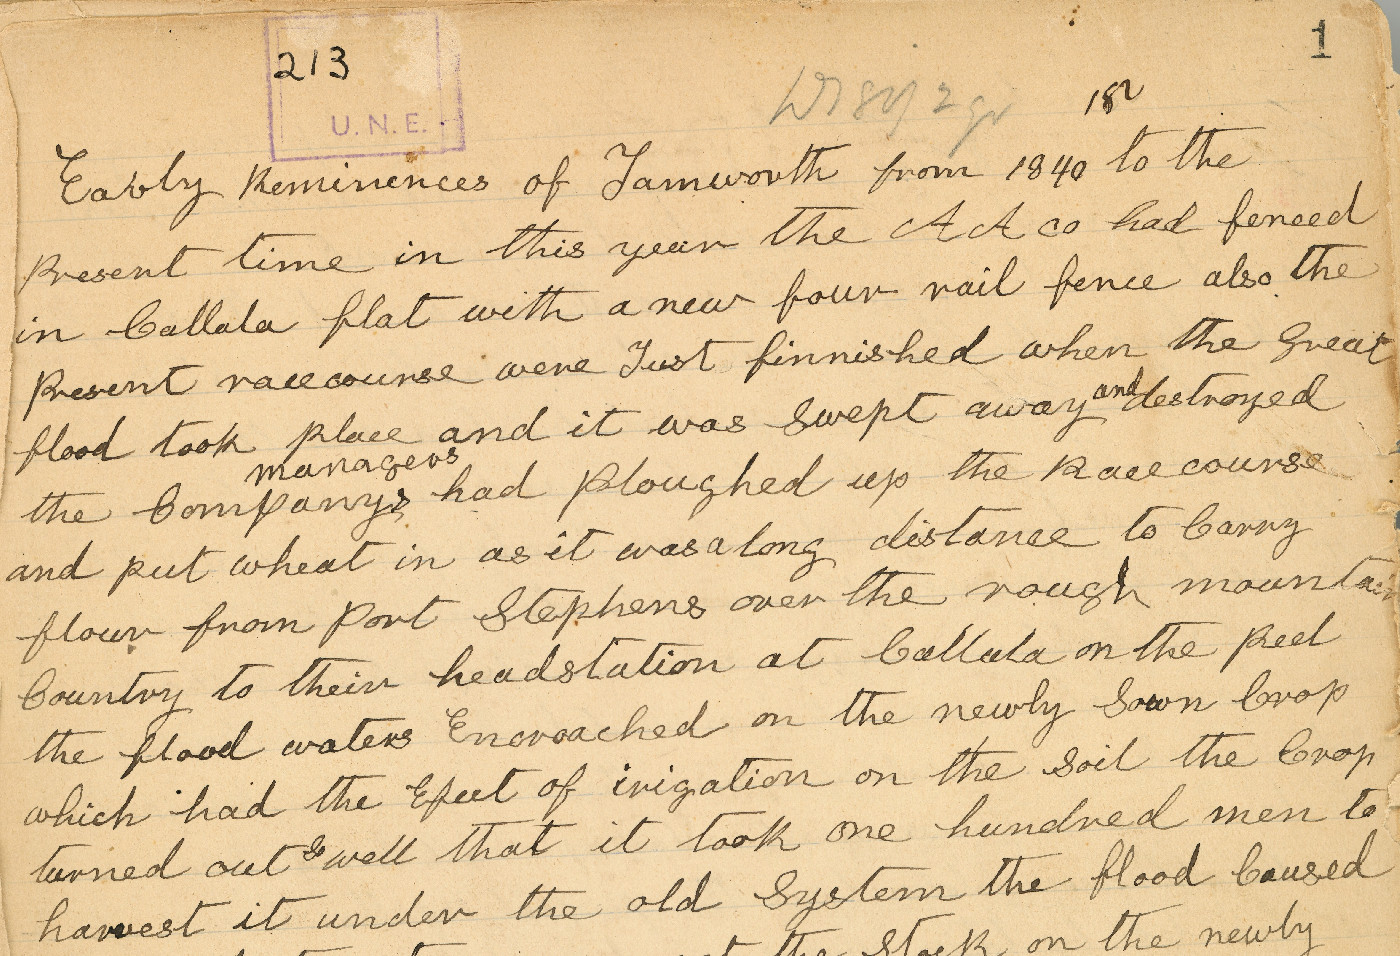 1
213
U.N.E.
182
Early Reminences of Tamworth from 1840 to the
Present time in this year the A A co had fenced
in Callala flat with a new four rail fence also the
Present racecourse were Just finnished when the Great
flood took place and it was swept away and destroyed
the Companys managers had ploughed up the Race course
and put wheat in as it was a long distance to Carry
flour from Port Stephens over the rough mountain
Country to their headstation at Callala on the Peel
the flood waters Encroached on the newly Sown Crop
which had the Efect of irigation on the Soil the Crop
turned out So well that it took one hundred men to
harvest it under the old System the flood Caused
the Stock on the newly